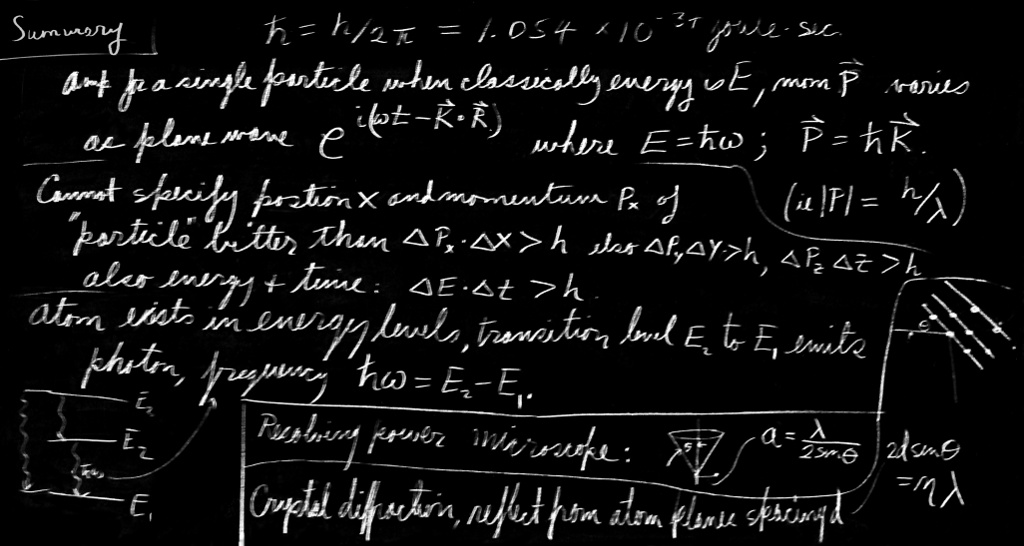 Summary
ħ = h/2π = 1.054 × 10⁻³⁴ joule·sec.
amp for a single particle when classically energy is E, mom P⃗ varies
as plane wave e^{i(ωt − K⃗·R⃗)} where E = ħω ; P⃗ = ħK⃗.
(ie |P| = h/λ)
Cannot specify postion x and momentum Pₓ of
"particle" better than ΔPₓ·ΔX > h also ΔP_yΔY > h, ΔP_z ΔZ > h
also energy + time: ΔE·Δt > h.
atom exists in energy levels, transition level E₂ to E₁ emits
photon, frequency ħω = E₂ − E₁.
E₂
E₁
Resolving power microscope: a = λ/2sinθ
2d sinθ
= nλ
Crystal diffraction, reflect from atom planes spacing d